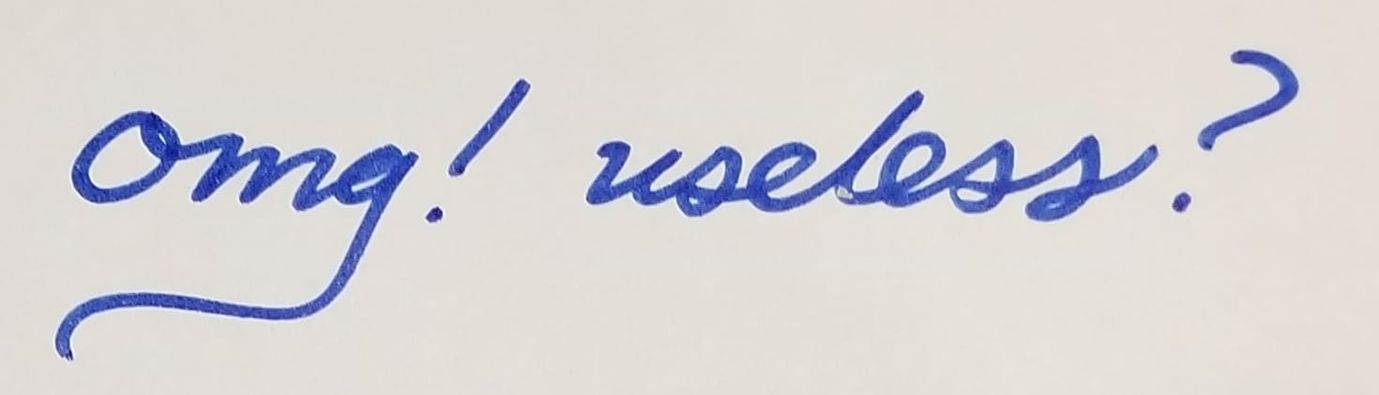 Omg! useless?